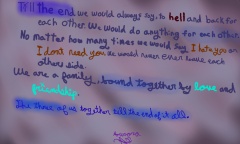 Till the end we would always say, to hell and back for
each other. We would do anything for each other.
No matter how many times we would say I hate you or
I don't need you we would never even leave each
others side.
We are a family, bound together by love and
friendship.
The three of us together till the end of it all.